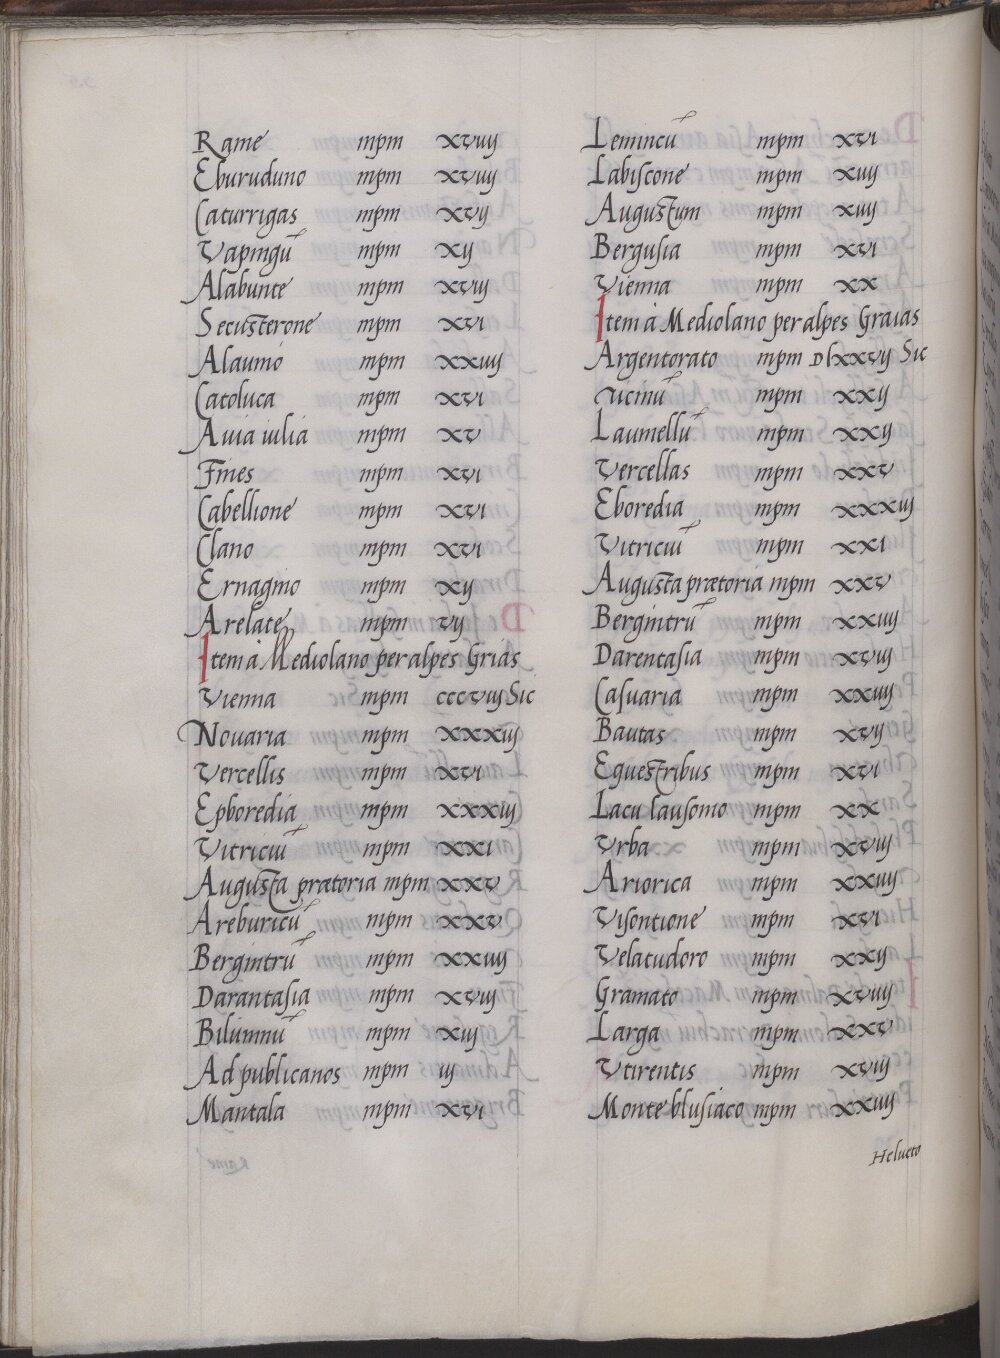 Rame mpm xviij
Eburuduno mpm xviij
Caturrigas mpm xvij
Vapingū mpm xij
Alabunte mpm xviij
Secusterone mpm xvi
Alaunio mpm xxiiij
Catoluca mpm xvi
Auia iulia mpm xv
Fines mpm xvi
Cabellione mpm xvi
Clano mpm xvi
Ernagino mpm xij
Arelate mpm vij
Item à Mediolano per alpes Grias
Vienna mpm cccviij Sic
Nouaria mpm xxxiij
Vercellis mpm xvi
Epboredia mpm xxxiij
Vitriciū mpm xxi
Augusta prætoria mpm xxv
Areburicū mpm xxv
Bergintrū mpm xxiiij
Darantasia mpm xviij
Bilumnū mpm xiij
Ad publicanos mpm iij
Mantala mpm xvi
Lemincū mpm xvi
Labiscone mpm xiiij
Augustum mpm xiiij
Bergusia mpm xvi
Vienna mpm xx
Item à Mediolano per alpes Graias
Argentorato mpm Dlxxvij Sic
Ticinū mpm xxij
Laumellū mpm xxij
Vercellas mpm xxv
Eboredia mpm xxxiij
Vitriciū mpm xxi
Augusta prætoria mpm xxv
Bergintrū mpm xxiiij
Darentasia mpm xviij
Casuaria mpm xxiiij
Bautas mpm xvij
Equestribus mpm xvi
Lacu lausonio mpm xx
Vrba mpm xviij
Ariorica mpm xxiiij
Visontione mpm xvi
Velatudoro mpm xxij
Gramato mpm xviiij
Larga mpm xxv
Vtirentis mpm xviij
Monte blusiaco mpm xxiiij
Helueto